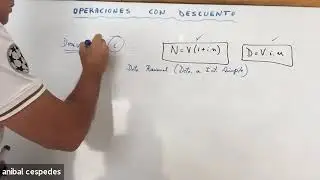 OPERACIONES CON DESCUENTO
i
N = V(1+i.n)
D = V.i.n
Dcto Racional (Dcto. a Int Simple)
anibal cespedes